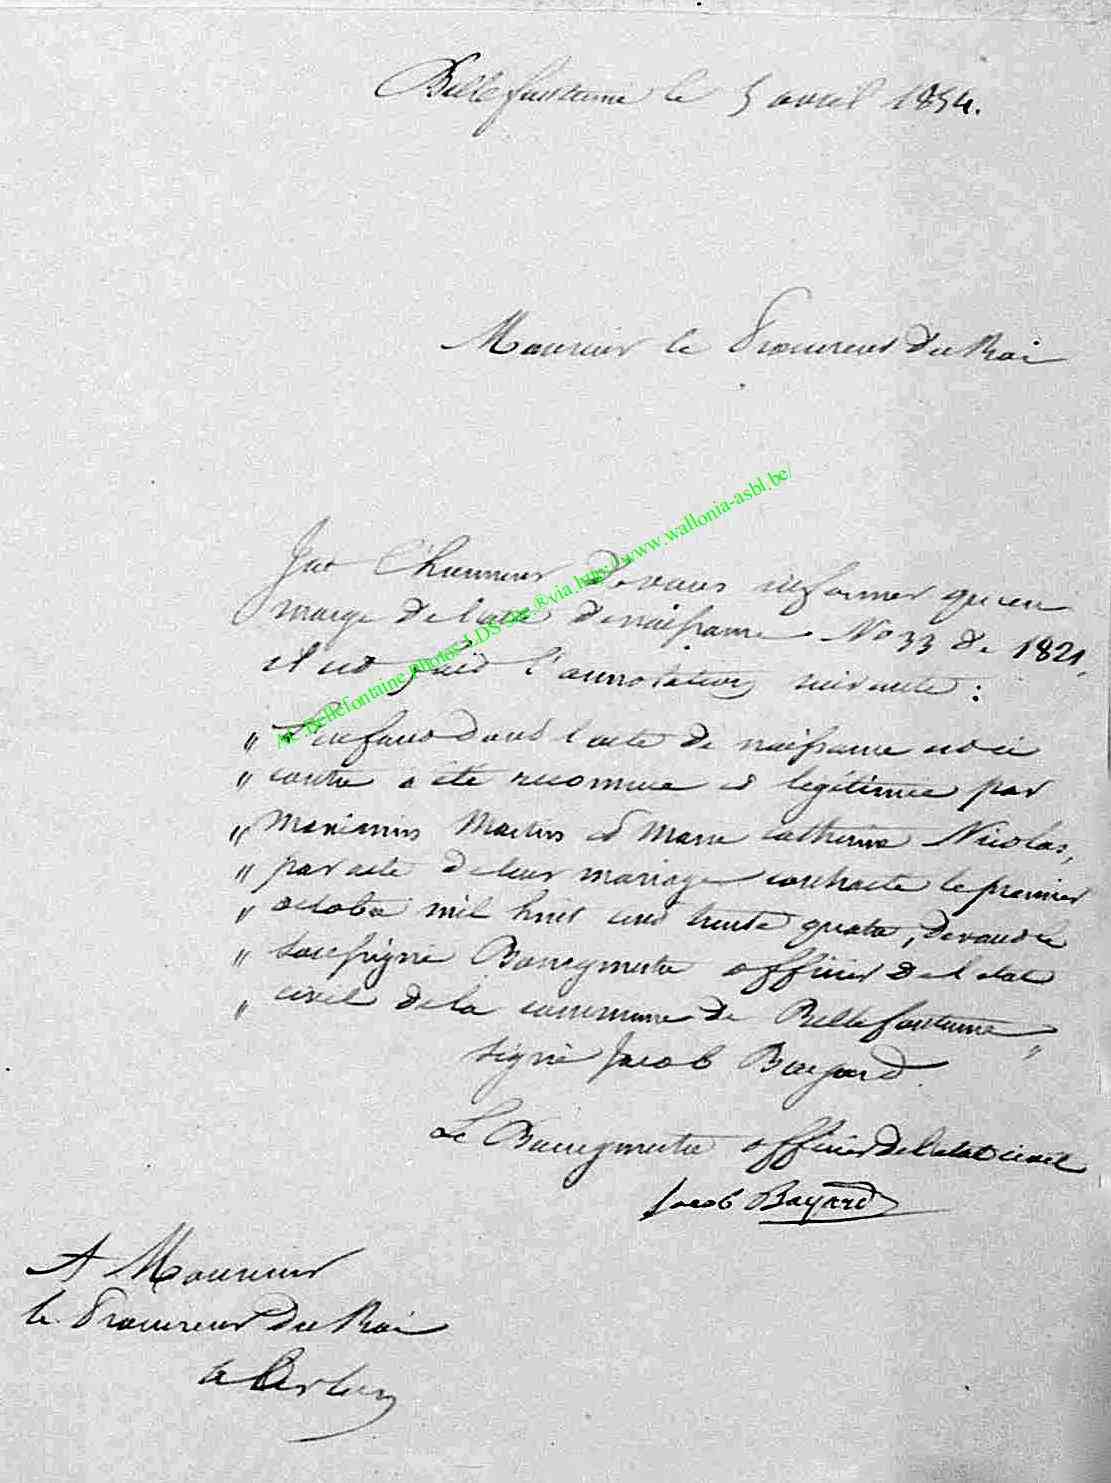 Bellefontaine le 5 avril 1854.
Monsieur le Procureur du Roi
J'ai l'honneur de vous informer qu'en
marge de l'acte de naissance No 33 de 1821,
il est fait l'annotation suivante :
" L'enfant dont l'acte de naissance est ci
" contre a été reconnue et légitimée par
" Maximin Martin et Marie Catherine Nicolas,
" par acte de leur mariage contracté le premier
" octobre mil huit cent trente quatre, devant le
" soussigné Bourgmestre officier de l'état
" civil de la commune de Bellefontaine "
signé Jacob Bayard
Le Bourgmestre officier de l'état civil
Jacob Bayard
A Monsieur
le Procureur du Roi
à Arlon
Bellefontaine Photos LDS via http://www.wallonia-asbl.be/